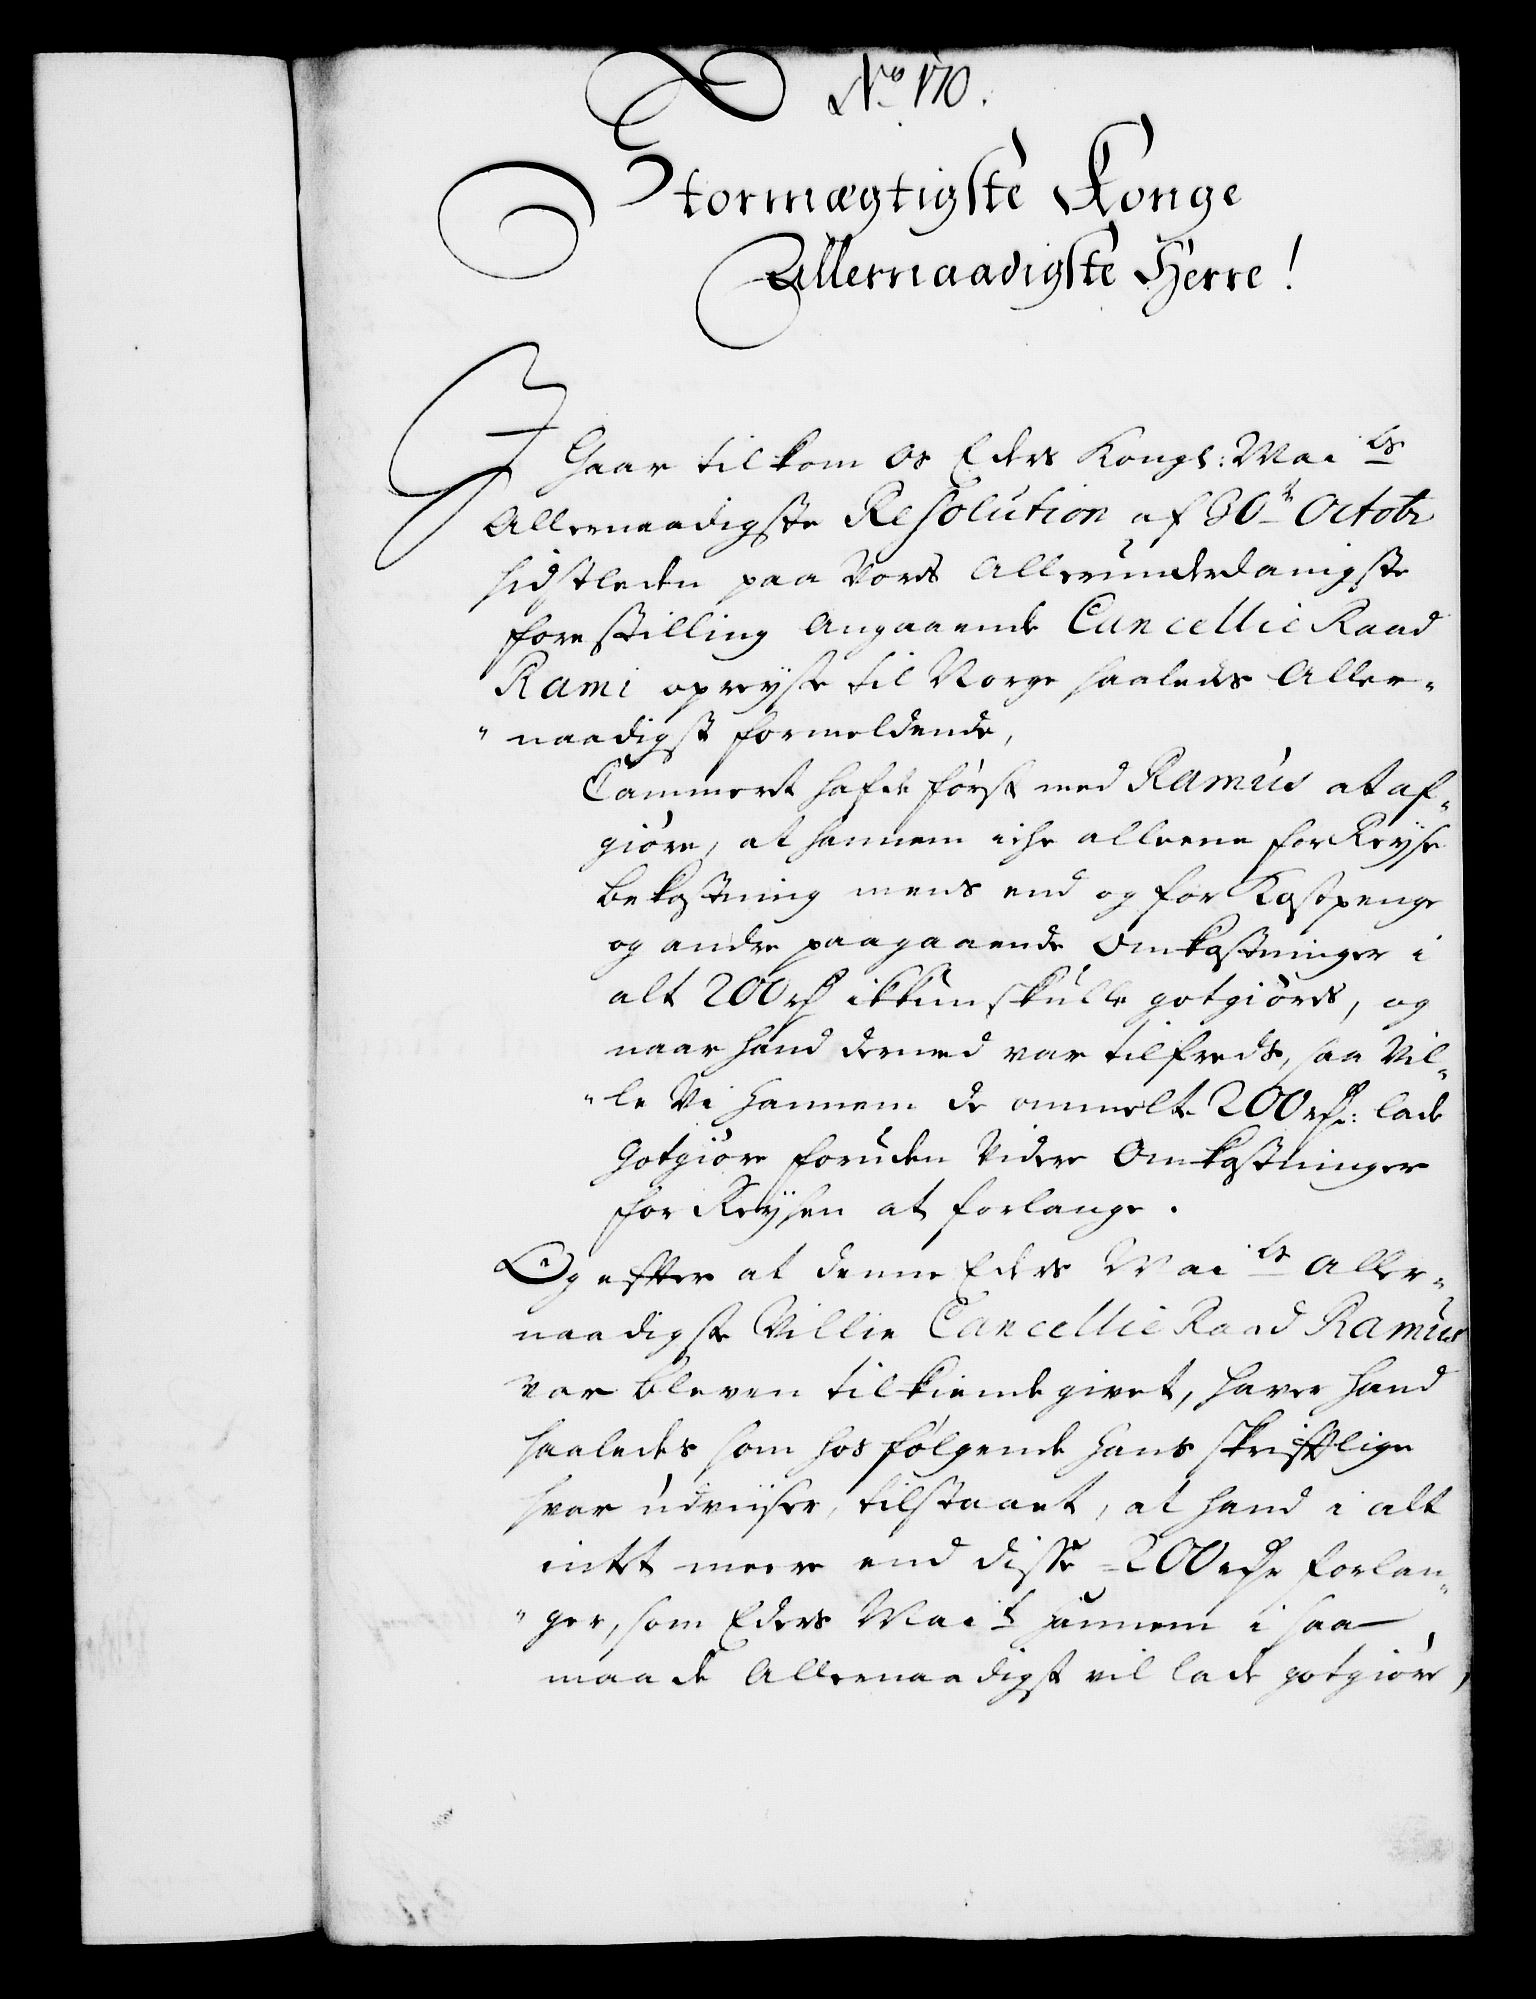 No 170.
Stormægtigste Konge
Allernaadigste Herre!
I Gaar tilkom os Eders Kongl: Mai ts
Allernaadigste Resolution af 30te Octobr
sidstleden paa Vores Allerunderdanigste
forestilling Angaaende Cancellie Raad
Rami opreyse til Norge saaledes Aller-
"naadigst formeldende,
Cammeret hafde først med Ramus at af-
giøre, at hannem icke alleene for Reyse
bekostning mens end og for Kostpenge
og andre paagaaende Omkostninger i
alt 200 rd ikkun skulle gotgiøres, og
naar hand dermed var tilfreds, saa Vil-
"le Vi hannem de ommelte 200 rd: lade
Gotgiøre foruden Videre Omkostninger
for Reysen at forlange.
Og effter at denne Eders Mai ts Aller-
naadigste Villie Cancellie Raad Ramus
var bleven tilkiende givet, haver hand
saaledes som hosfølgende hans skrifftlige
svar udviiser, tilstaaet, at hand i alt
intet meere end disse 200 rdr forlan-
"ger, som Eders Mai t hannem i saa
maade Allernaadigst vil lade gotgiøre,